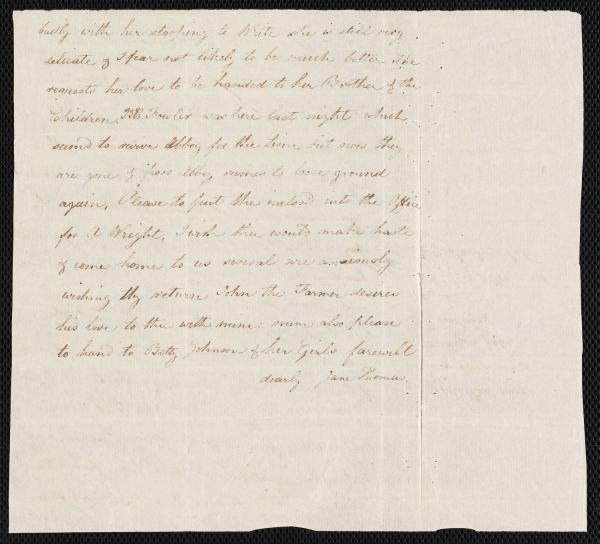 badly with her stooping to Write she is still very
delicate & I fear not likely to be much better She
requests her love to be handed to her Brother & the
Children, Fowler was here last night which
seemd to revive Abby for the time but now they
are gone & poor Abby seems to loose ground
again, Please to put the inclosd into the Office
for A Wright, I wish thee would make haste
& come home to us several are anxiously
wishing thy return John the Farmer desires
his love to thee with mine: mine also please
to hand to Betty Johnson & her Girls farewell
dearly Jane Thomas